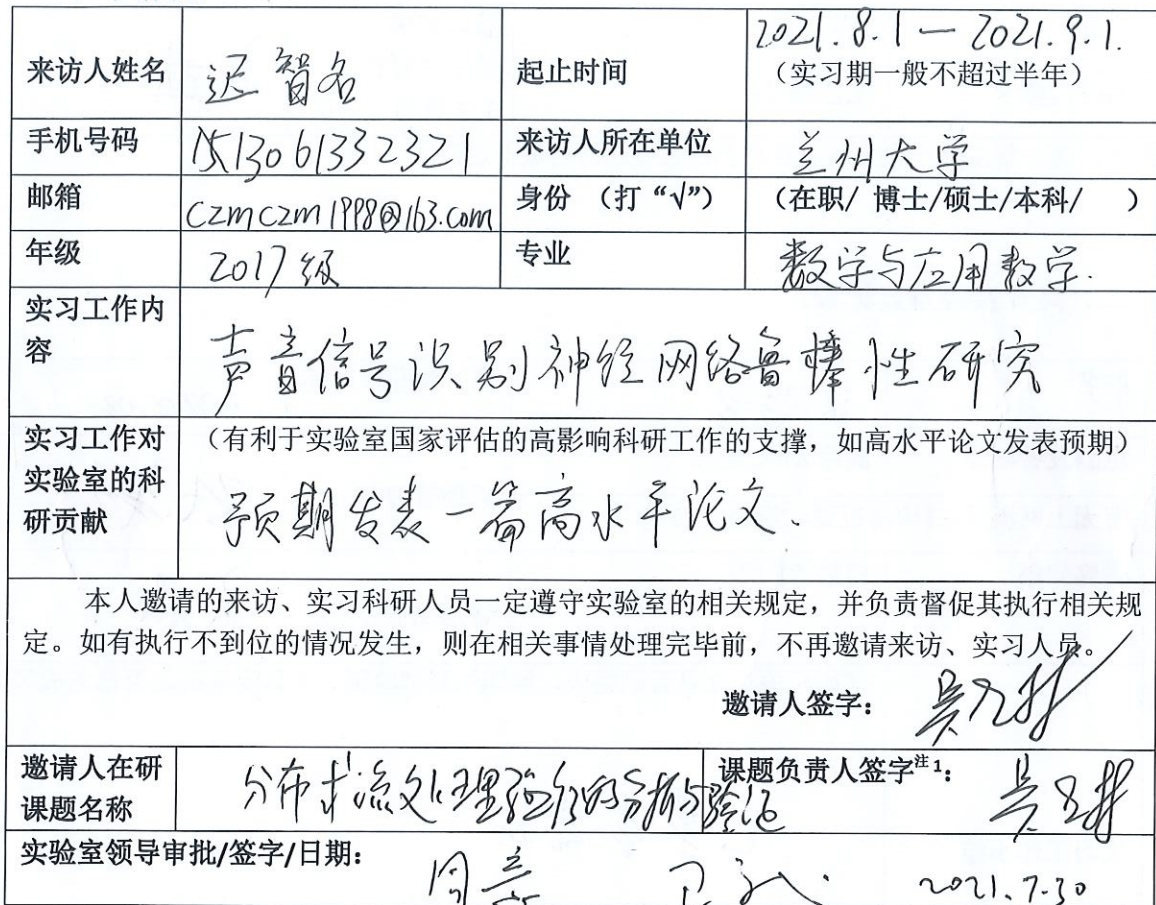 2021.8.1 — 2021.9.1.
来访人姓名 迟智名 起止时间 （实习期一般不超过半年）
手机号码 来访人所在单位 兰州大学
邮箱 czmczm1998@163.com 身份 （打“√”） （在职/ 博士/硕士/本科/ ）
年级 2017级 专业 数学与应用数学.
实习工作内
容
声音信号识别神经网络鲁棒性研究
实习工作对
实验室的科
研贡献
（有利于实验室国家评估的高影响科研工作的支撑，如高水平论文发表预期）
预期发表一篇高水平论文.
本人邀请的来访、实习科研人员一定遵守实验室的相关规定，并负责督促其执行相关规
定。如有执行不到位的情况发生，则在相关事情处理完毕前，不再邀请来访、实习人员。
邀请人签字：
邀请人在研
课题名称
分布式流处理程序的分析与验证
课题负责人签字注1：
实验室领导审批/签字/日期： 2021.7.30